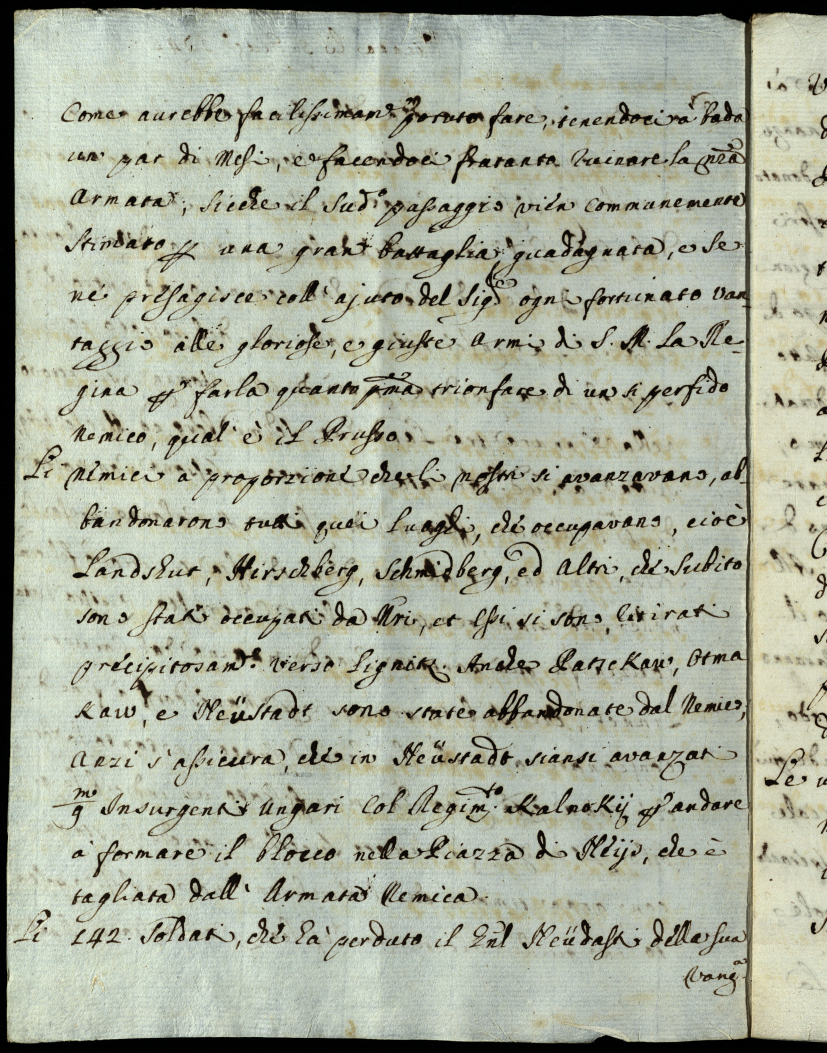 Come aurebbe facilissimam.te potuto fare, tenendoci à bada
un par di Mesi, e facendoci fratanto ruinare la nrã
Armata, sicche il sud.o passaggio vien communemente
stimato p una gran battaglia guadagnata, e se
ne presagisce coll' ajuto del Sig.re ogni fortunato van-
taggio alle gloriose, e giuste Armi di S. M. la Re-
gina p farla quanto pma trionfare di un si perfido
nemico, qual' è il Prusso
Li nemici a proporzione che li nostri si avanzavano, ab-
bandonarono tutti quei luoghi, che occupavano, cioè
Landshut, Hirschberg, Schmidberg, ed altri, che subito
sono stati occupati da Nri, et essi si sono ritirati
precipitosam.te verso Lignitz. Anche Patzckaw, Otma
kaw, e Neüstadt sono state abbandonate dal Nemico,
anzi s'assicura, che in Neüstadt siansi avanzati
m/9 Insurgenti Ungari col Regim.to Kalnokij p andare
à formare il blocco nella Piazza di Neijs, che è
tagliata dall' Armata Nemica.
Li 142 Soldati, che ha perduto il Gnl Neüdasti della sua
Vang.a